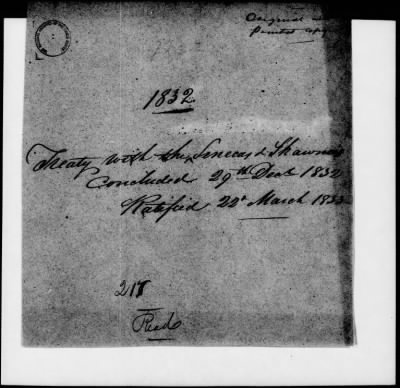 Original and
printed copy
1832
Treaty with the Senecas & Shawnees
Concluded 29th Decr 1832
Ratified 22d March 1833
217
Read